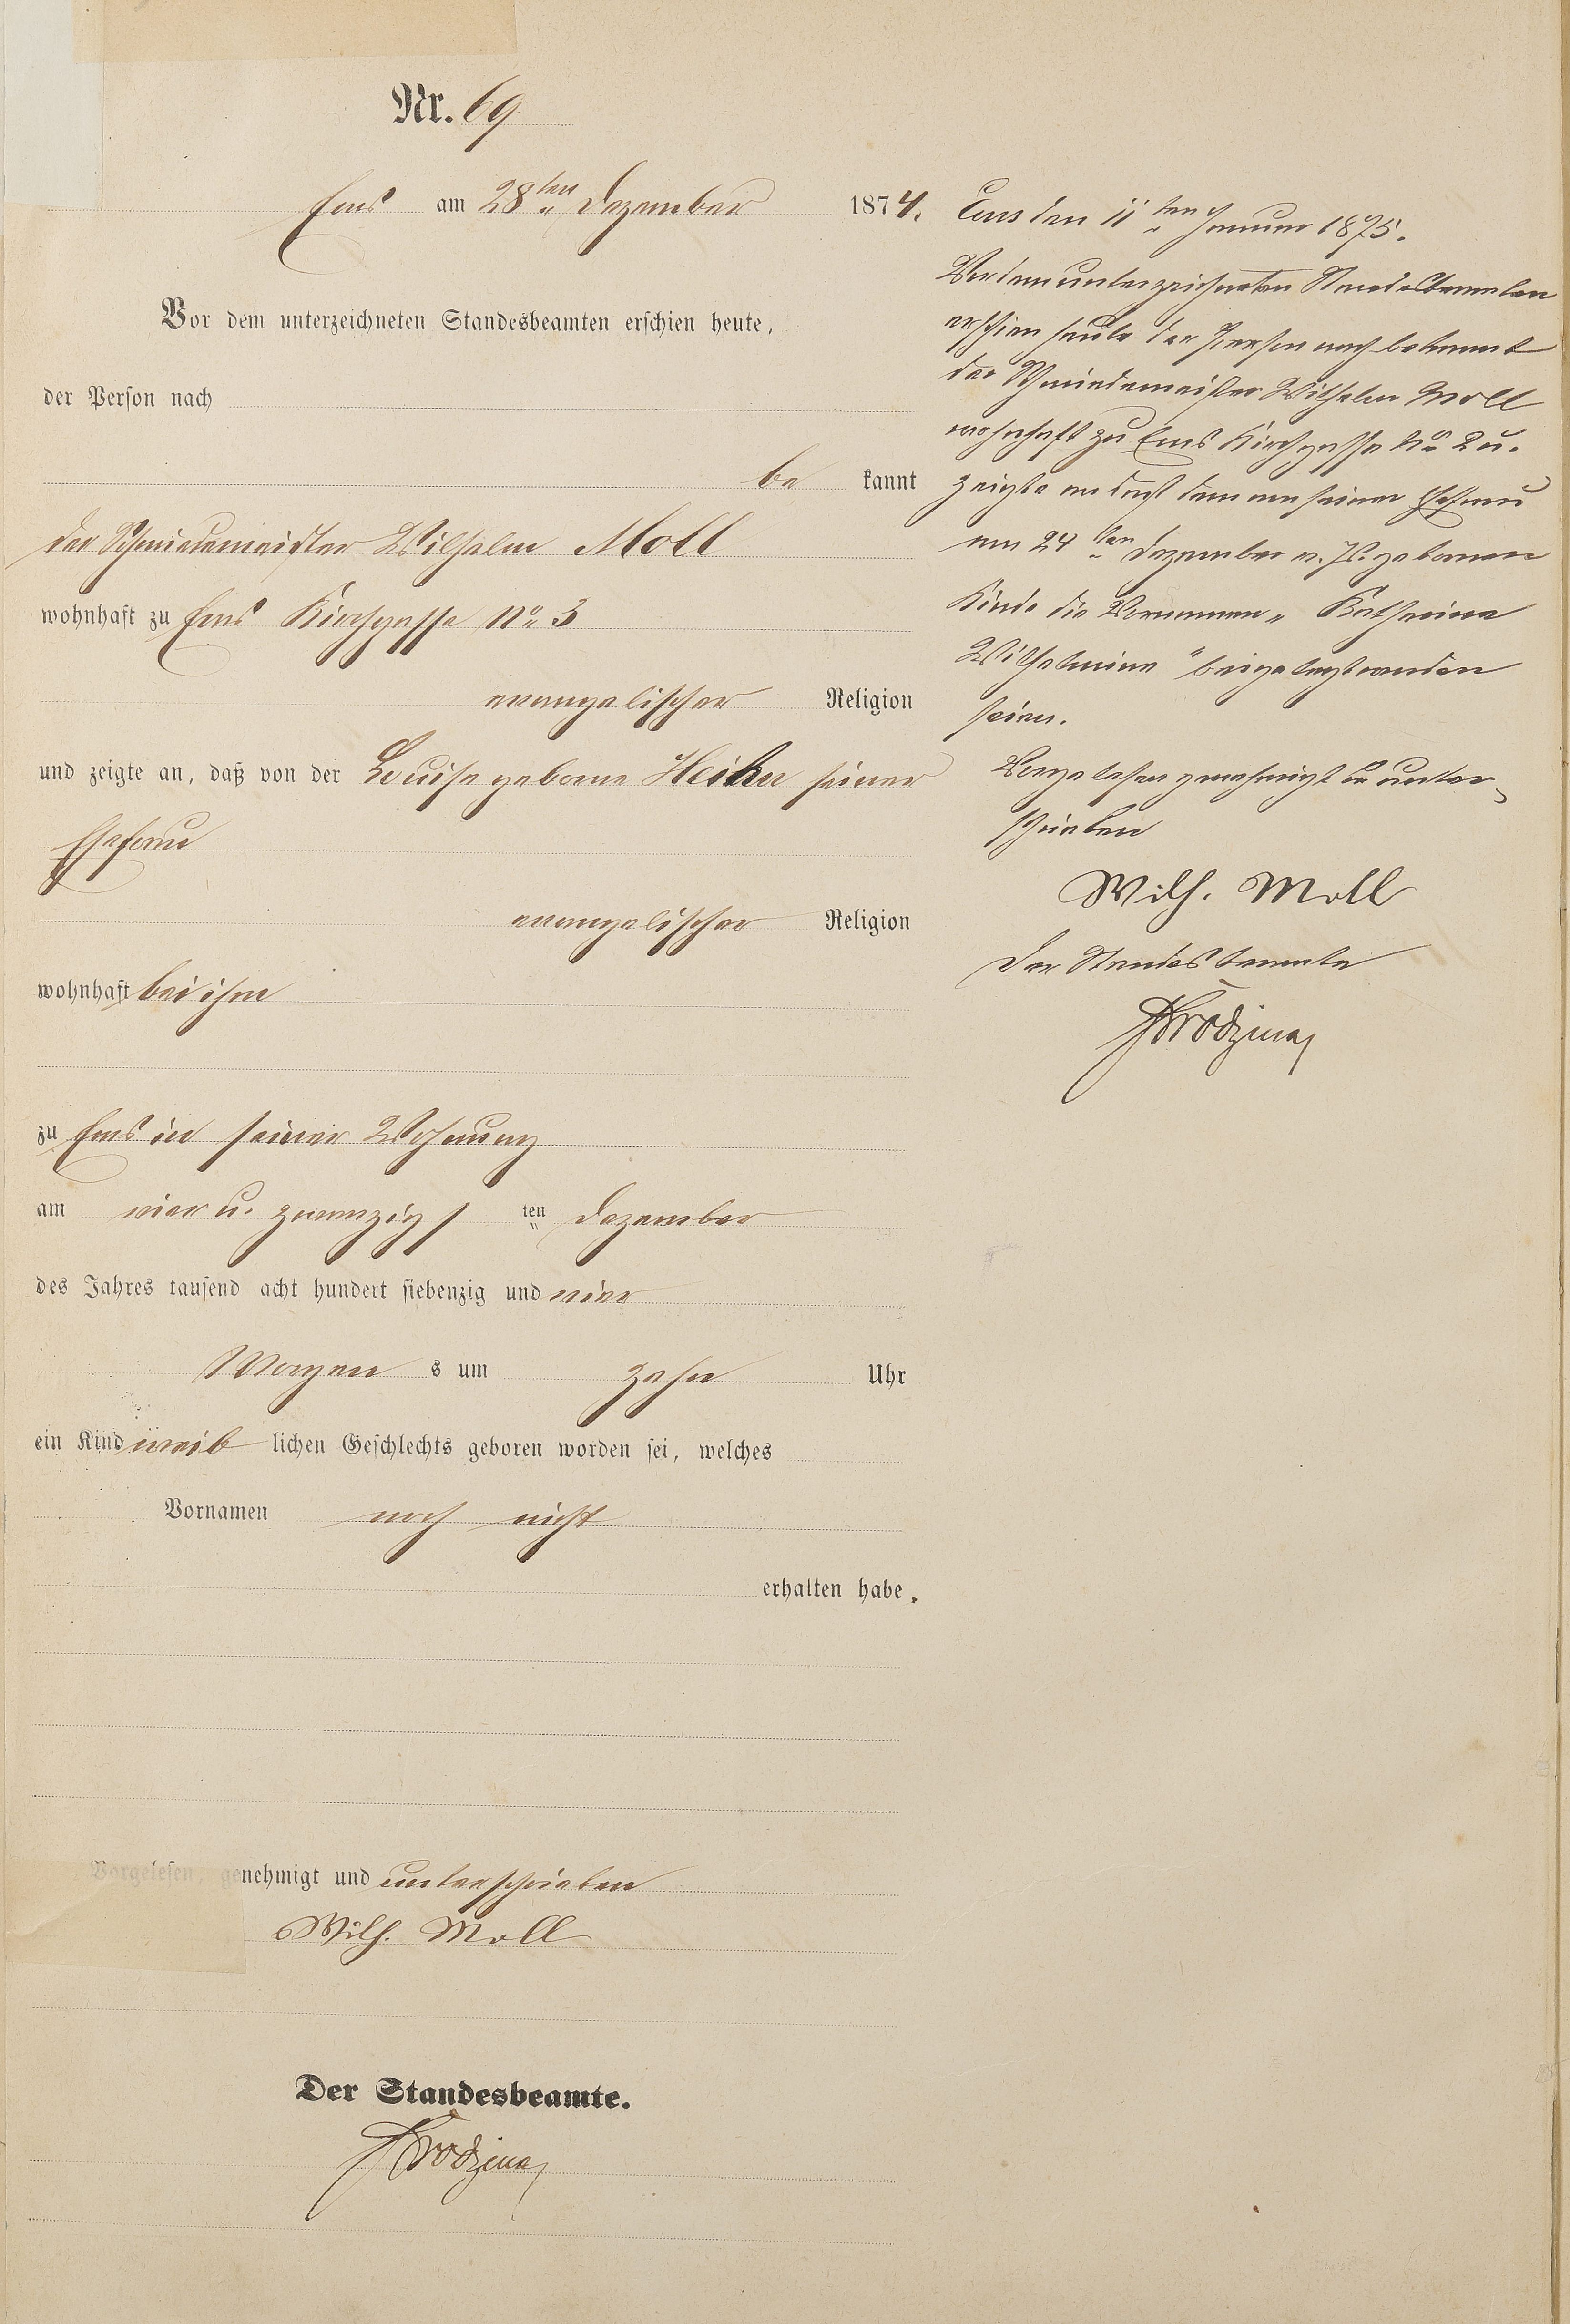 Nr. 69
Ems am 28ten Dezember 1874.
Vor dem unterzeichneten Standesbeamten erschien heute,
der Person nach
be kannt
der Schmiedemeister Wilhelm Moll
wohnhaft zu Ems Kirchgasse No 3
evangelischer Religion
und zeigte an, daß von der Louise geborne seiner
Ehefrau
evangelischer Religion
wohnhaft bei ihm
zu Ems in seiner Wohnung
am vier u. zwanzigs ten Dezember
des Jahres tausend acht hundert siebenzig und vier
Morgen s um zehn Uhr
ein Kind weib lichen Geschlechts geboren worden sei, welches
Vornamen noch nicht
erhalten habe.
Vorgelesen, genehmigt und unterschrieben
Wilh. Moll
Der Standesbeamte.
Ems den 11ten Januar 1875.
Vor dem unterzeichneten Standesbeamten
erschien heute der Person nach bekannt
der Schmiedemeister Wilhelm Moll
wohnhaft zu Ems Kirchgasse No u.
zeigte an daß dem von seiner Ehefrau
am 24ten Dezember v. Js. geborenen
Kinde die Vornamen „Katharina
Wilhelmine“ beigelegt worden
seien.
Vorgelesen genehmigt u. unter-
schrieben
Wilh. Moll
Der Standesbeamte